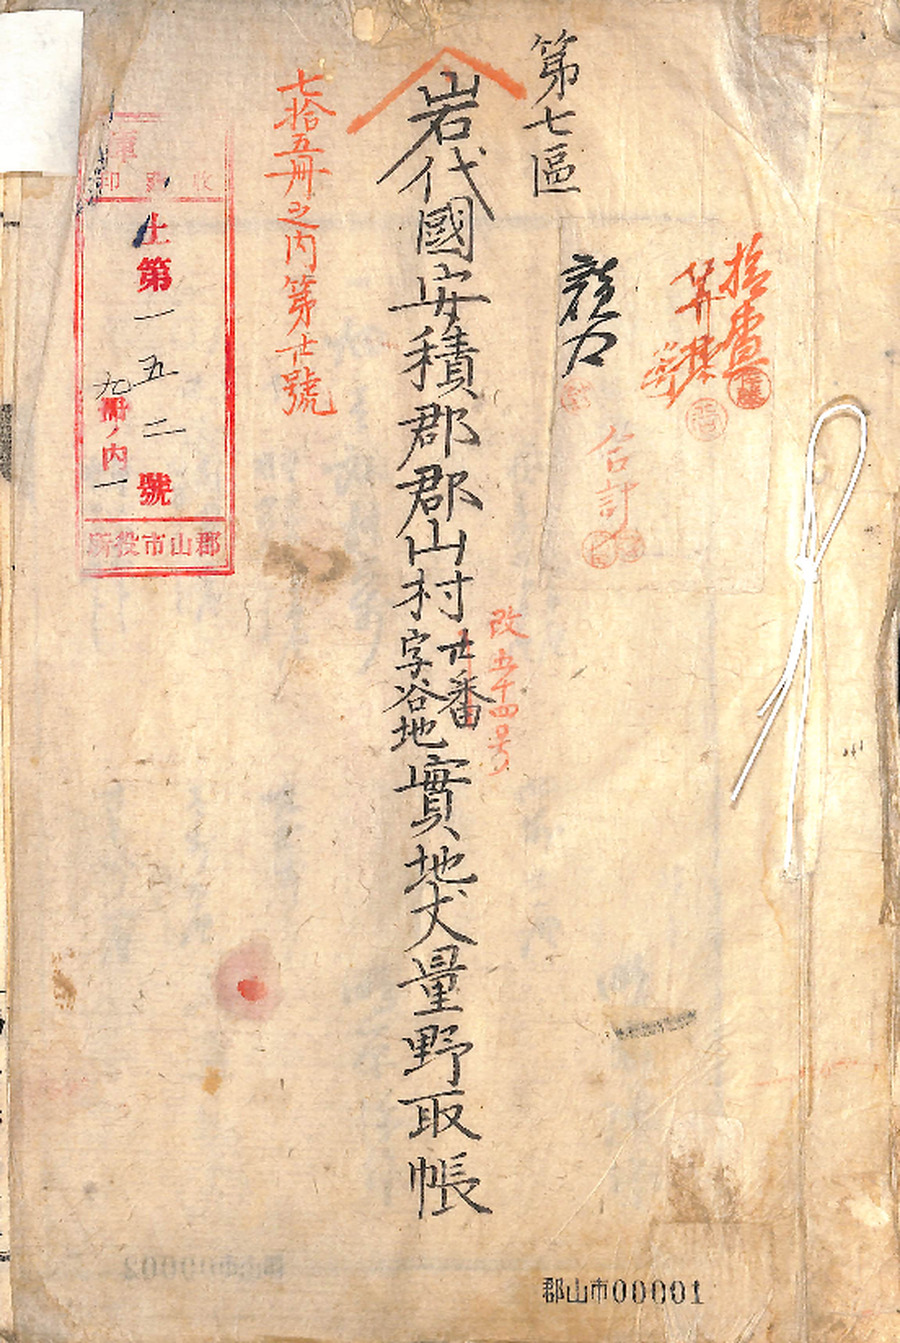 第七區
岩代國安積郡郡山村
廿番
字谷地
實地丈量野取帳
改五十四号
七拾五冊之内第廿號
合計
庫
収 印
土第一五二號
九冊ノ内一
郡山市役所
郡山市00001